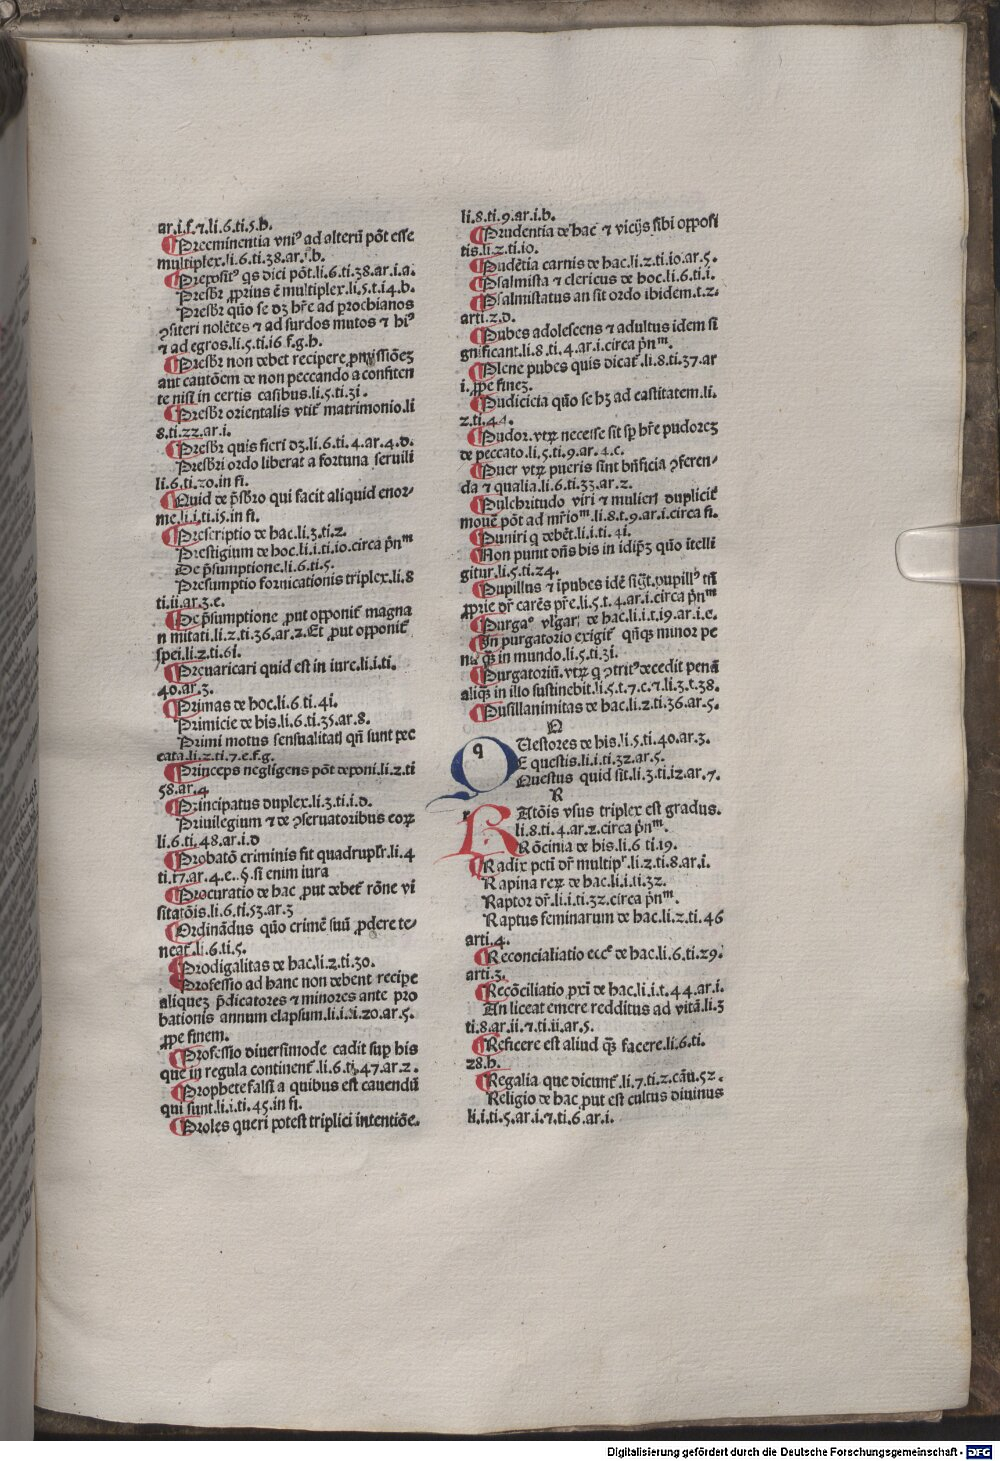 ar.i.f.⁊.li.6.ti.5.h.
¶Preeminentia vniꝰ ad alterū pōt esse
multiplex.li.6.ti.38.ar.i.b.
¶Prepositꝰ qͣs dici pōt.li.6.ti.38.ar.i.a.
Presbr̄ ꝓprius ē multiplex.li.5.t.i4.b.
Presbr̄ quō se dꝫ hr̄e ad ꝑrochianos
ꝯfiteri nolētes ⁊ ad surdos mutos ⁊ hiꝰ
⁊ ad egros.li.5.ti.i6.f.g.h.
¶Presbr̄ non debet recipere ꝓmissiōeꝫ
aut cautōem de non peccando a confiten
te nisi in certis casibus.li.5.ti.3i.
¶Presbr̄ orientalis vtit̄ matrimonio.li
8.ti.22.ar.i.
¶Presbr̄ quis fieri dꝫ.li.6.ti.4.ar.4.d.
Presbr̄i ordo liberat a fortuna seruili
li.6.ti.20.in fi.
¶Quid de p̄sbr̄o qui facit aliquid enor⸗
me.li.i.ti.i5.in fi.
¶Prescriptio de hac.li.3.ti.2.
Prestigium de hoc.li.i.ti.io.circa p̄nᵐ
De p̄sumptione.li.6.ti.5.
Presumptio fornicationis triplex.li.8
ti.ii.ar.3.e.
¶De p̄sumptione ꝓut opponit̄ magna
n mitati.li.2.ti.36.ar.2.Et ꝓut opponit̄
spei.li.2.ti.6i.
¶Preuaricari quid est in iure.li.i.ti.
40.ar.3.
¶Primas de hoc.li.6.ti.4i.
Primicie de his.li.6.ti.35.ar.8.
Primi motus sensualitatꝭ qn̄ sunt pec
cata.li.2.ti.7.e.f.g.
¶Princeps negligens pōt deponi.li.2.ti
58.ar.4
¶Principatus duplex.li.3.ti.i.d.
Priuilegium ⁊ de ꝯseruatoribus eoꝝ
li.6.ti.48.ar.i.d
¶Probatō criminis fit quadrupl̄r.li.4
ti.i7.ar.4.e..§.si enim iura
¶Procuratio de hac ꝓut debet̄ rōne vi
sitatōis.li.6.ti.53.ar.3
¶Ordinādus quō crimē suū ꝓdere te⸗
neat̄.li.6.ti.5.
¶Prodigalitas de hac.li.2.ti.30.
¶Professio ad hanc non debent recipe
aliqueꝫ p̄dicatores ⁊ minores ante pro
bationis annum elapsum.li.i.ti.20.ar.5.
ꝓpe finem.
¶Professio diuersimode cadit suꝑ his
que in regula continent̄.li.6.ti.47.ar.2.
¶Prophete falsi a quibus est cauendū
qui sunt.li.i.ti.45.in fi.
¶Proles queri potest triplici intentiōe.
li.8.ti.9.ar.i.b.
¶Prudentia de hac ⁊ vicijs sibi opposi
tis.li.2.ti.io.
¶Pudētia carnis de hac.li.2.ti.io.ar.5.
¶Psalmista ⁊ clericus de hoc.li.6.ti.i.
¶Psalmistatus an sit ordo ibidem.t.2.
arti.2.d.
¶Pubes adolescens ⁊ adultus idem si
gnificant.li.8.ti.4.ar.i.circa p̄nᵐ.
¶Plene pubes quis dicat̄.li.8.ti.37.ar
i.ꝓpe fineꝫ.
¶Pudicicia quō se hꝫ ad castitatem.li.
2.ti.44.
¶Pudor.vtꝝ necesse sit sꝑ hr̄e pudoreꝫ
de peccato.li.5.ti.9.ar.4.c.
¶Puer vtꝝ pueris sint bn̄ficia ꝯferen⸗
da ⁊ qualia.li.6.ti.33.ar.2.
¶Pulchritudo viri ⁊ mulierꝭ duplicit̄
mouē pōt ad mr̄ioᵐ.li.8.t.9.ar.i.circa fi.
¶Puniri q̄ debēt.li.i.ti.4i.
¶Non punit dn̄s bis in idip̄ꝫ quō ītelli
gitur.li.5.ti.24.
¶Pupillus ⁊ īpubes idē sigt̄.pupillꝰ tn̄
ꝓprie dr̄ carēs pr̄e.li.5.t.4.ar.i.circa p̄nᵐ
¶Purgaº vlgarꝭ de hac.li.i.t.i9.ar.i.e.
¶In purgatorio exigit̄ qn̄qꝫ minor pe
na qͣꝫ in mundo.li.5.ti.3i.
¶Purgatoriū.vtꝝ q̄ ꝯtritꝰ decedit penā
aliqͣꝫ in illo sustinebit.li.5.t.7.c.⁊.li.3.t.38.
¶Pusillanimitas de hac.li.2.ti.36.ar.5.
Q
q Uestores de his.li.5.ti.40.ar.3.
E questis.li.i.ti.32.ar.5.
Questus quid sit.li.3.ti.i2.ar.7.
R
r Atōis vsus triplex est gradus.
li.8.ti.4.ar.2.circa p̄nᵐ.
Rōcinia de his.li.6 ti.i9.
¶Radix pcti dr̄ multipʳ.li.2.ti.8.ar.i.
Rapina reꝝ de hac.li.i.ti.32.
Raptor dr̄.li.i.ti.32.circa p̄nᵐ.
Raptus feminarum de hac.li.2.ti.46
arti.4.
¶Reconcialiatio eccᵉ de hac.li.6.ti.29.
arti.3.
¶Recōciliatio pxi de hac.li.i.t.44.ar.i.
An liceat emere redditus ad vitā.li.3
ti.8.ar.ii.⁊.ti.ii.ar.5.
¶Reficere est aliud qͣꝫ facere.li.6.ti.
28.h.
¶Regalia que dicunt̄.li.7.ti.2.cāu.52.
Religio de hac ꝓut est cultus diuinus
li.i.ti.5.ar.i.⁊.ti.6.ar.i.
Digitalisierung gefördert durch die Deutsche Forschungsgemeinschaft - DFG